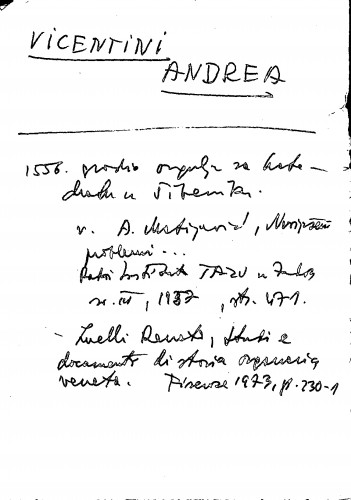 VICENTINI
ANDREA
1556. gradio orgulje za kate-
dralu u Šibeniku.
v. A. , 
problemi...
Radovi Instituta JAZU u Zadru
sv. III, 1957, str. 471.
- Lunelli Renato, Studi e
documenti di storia organaria
veneta. Firenze 1973, p. 230-1